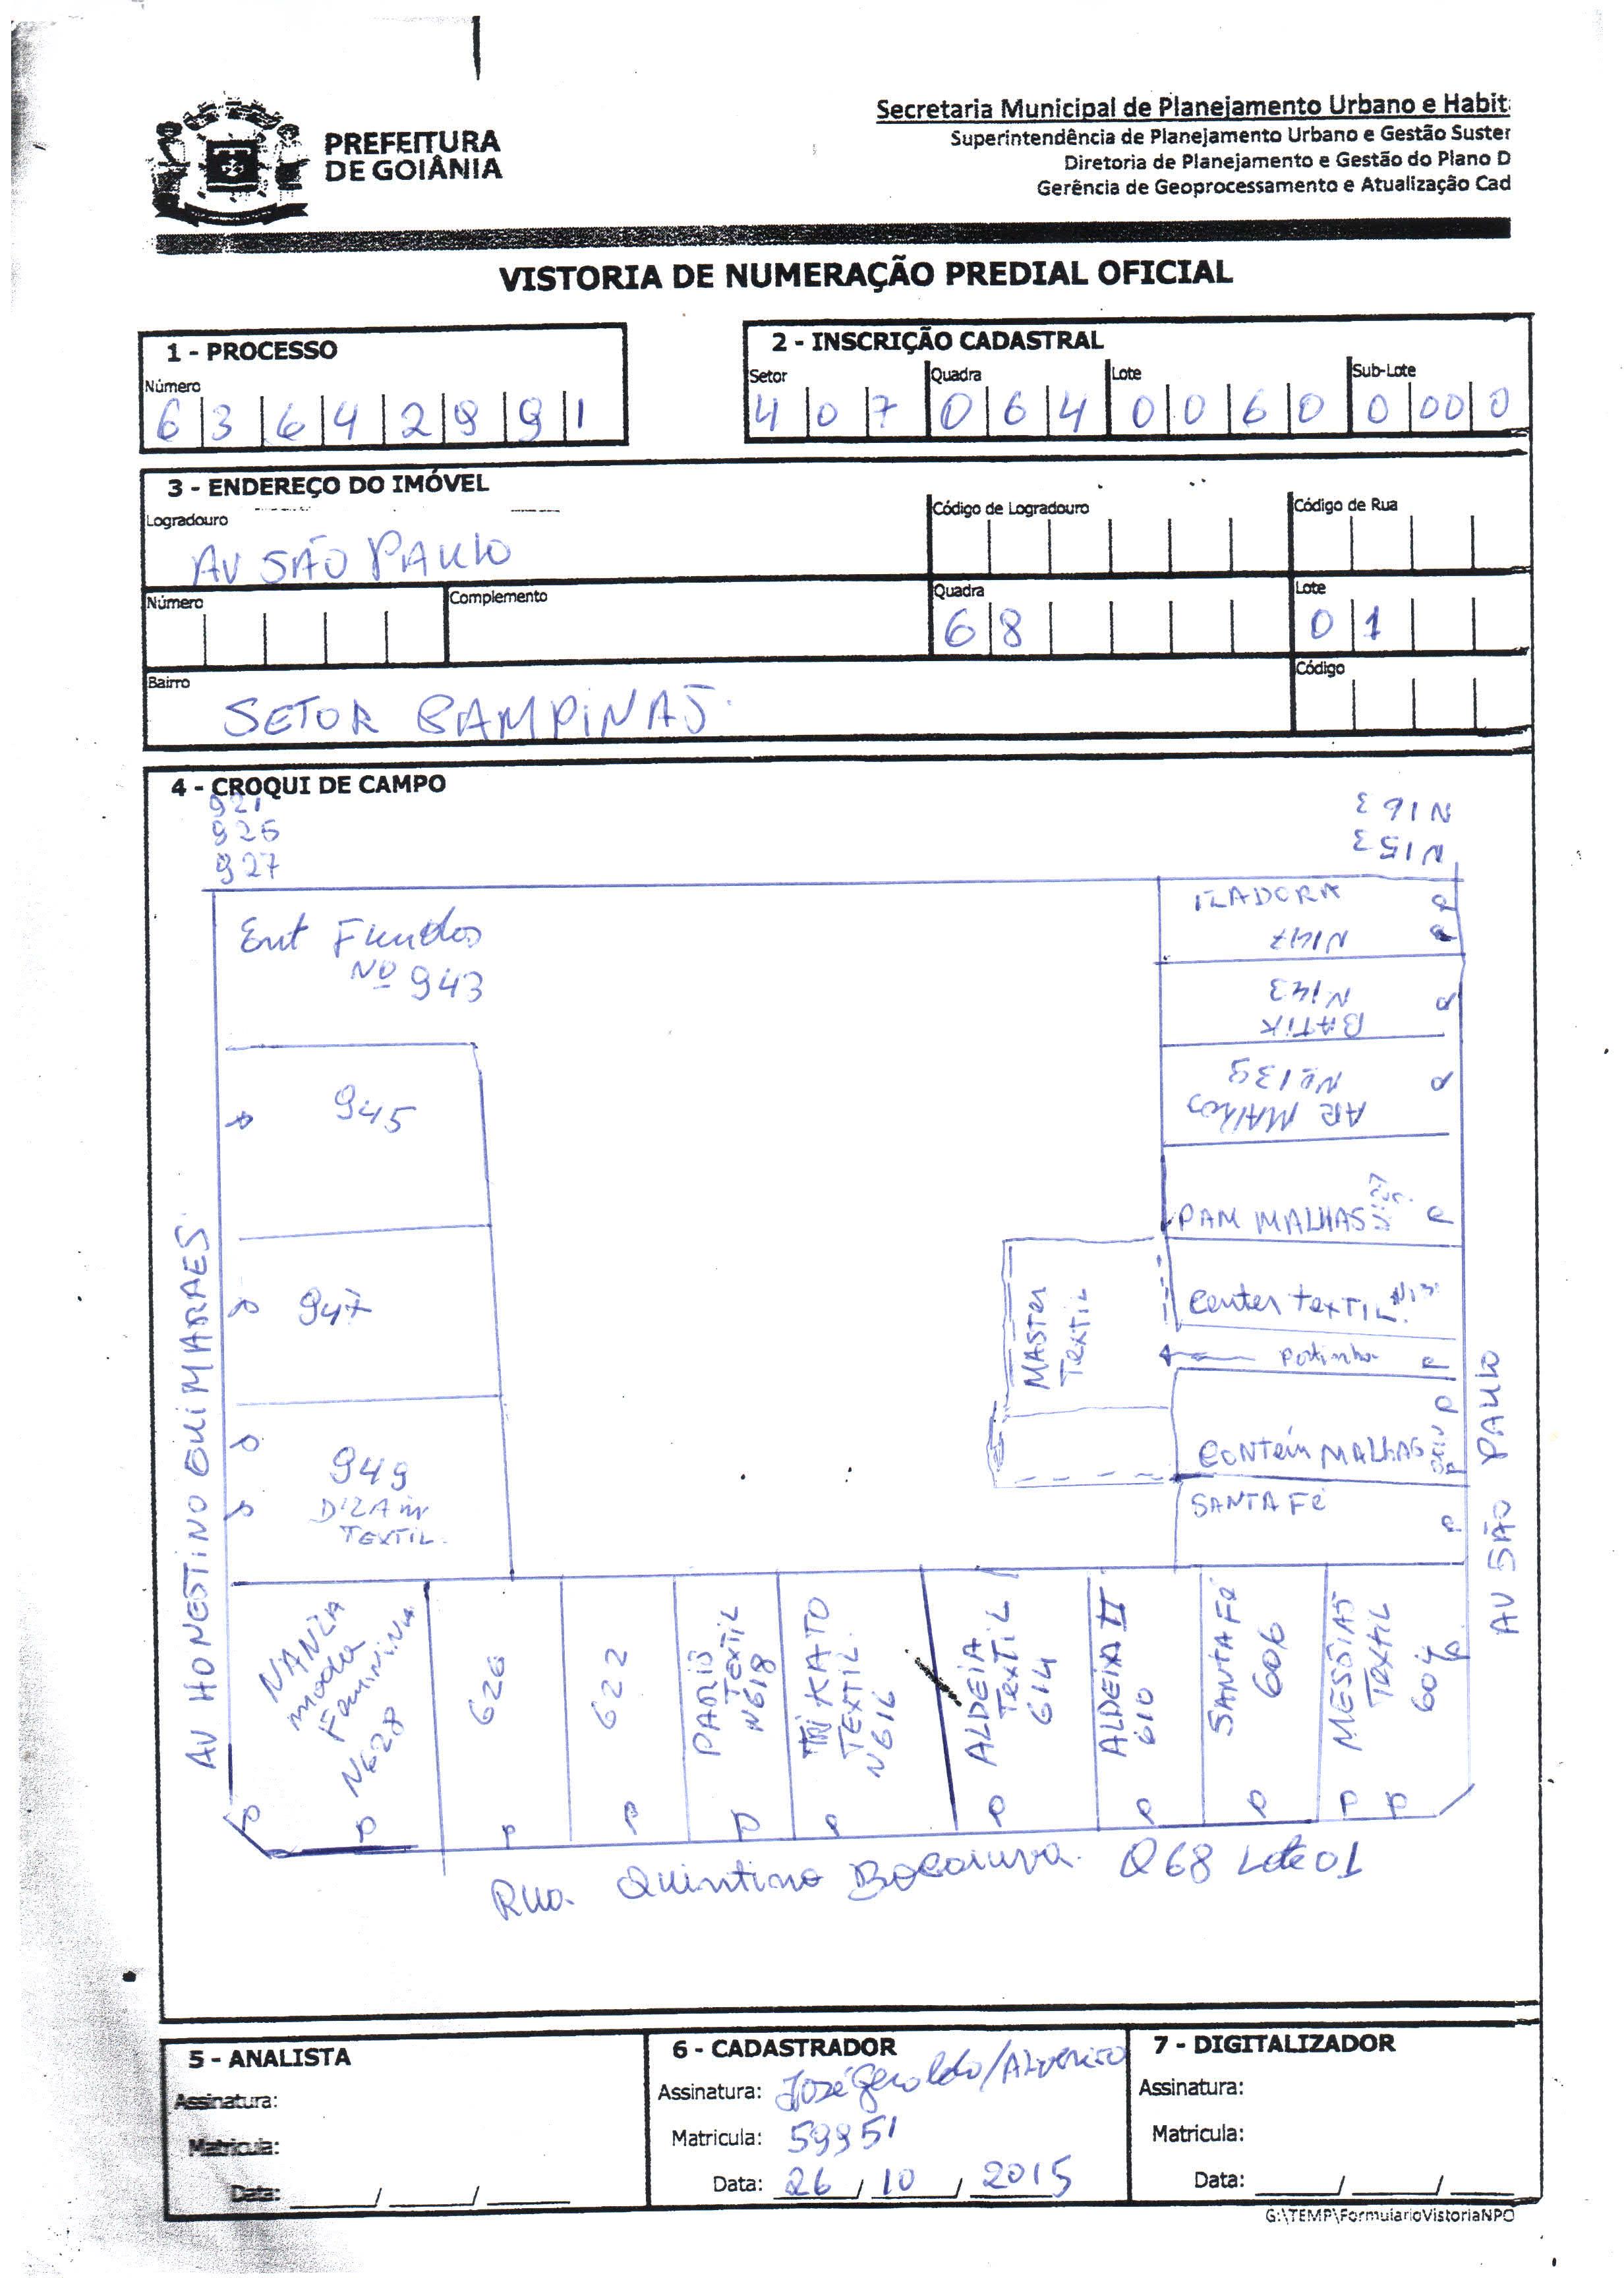 PREFEITURA
DE GOIÂNIA
Secretaria Municipal de Planejamento Urbano e Habit
Superintendência de Planejamento Urbano e Gestão Suster
Diretoria de Planejamento e Gestão do Plano D
Gerência de Geoprocessamento e Atualização Cad
VISTORIA DE NUMERAÇÃO PREDIAL OFICIAL
1 - PROCESSO
Número
6 3 6 4 2 9 9 1
2 - INSCRIÇÃO CADASTRAL
Setor Quadra Lote Sub-Lote
4 0 7 0 6 4 0 0 6 0 0 00 0
3 - ENDEREÇO DO IMÓVEL
Logradouro Código de Logradouro Código de Rua
AV SÃO PAULO
Número Complemento Quadra Lote
6 8 0 1
Bairro Código
SETOR CAMPINAS
4 - CROQUI DE CAMPO
921
925
927
N163
N153
Ent Fundos
Nº 943
945
947
949
DIZAM
TEXTIL
AV HONESTINO GUIMARAES
N147
N143
BATIK
Nº 139
AR MALHAS
PAM MALHAS
Center TEXTIL
Portinha
CONTEM MALHAS
SANTA FÉ
MASTER
TEXTIL
AV SÃO PAULO
NANZA
moda
Feminina
N628
626
622
PARIS
TEXTIL
N618
TRIKATO
TEXTIL
N616
ALDEIA
TEXTIL
614
ALDEIA II
610
SANTA FÉ
606
MESSIAS
TEXTIL
604
Rua Quintino Bocaiuva Q68 Lote 01
5 - ANALISTA
Assinatura:
Matricula:
Data: ____/____/____
6 - CADASTRADOR
Assinatura: José Geraldo/
Matricula: 59951
Data: 26/10/2015
7 - DIGITALIZADOR
Assinatura:
Matricula:
Data: ____/____/____
G:\TEMP\FormularioVistoriaNPO